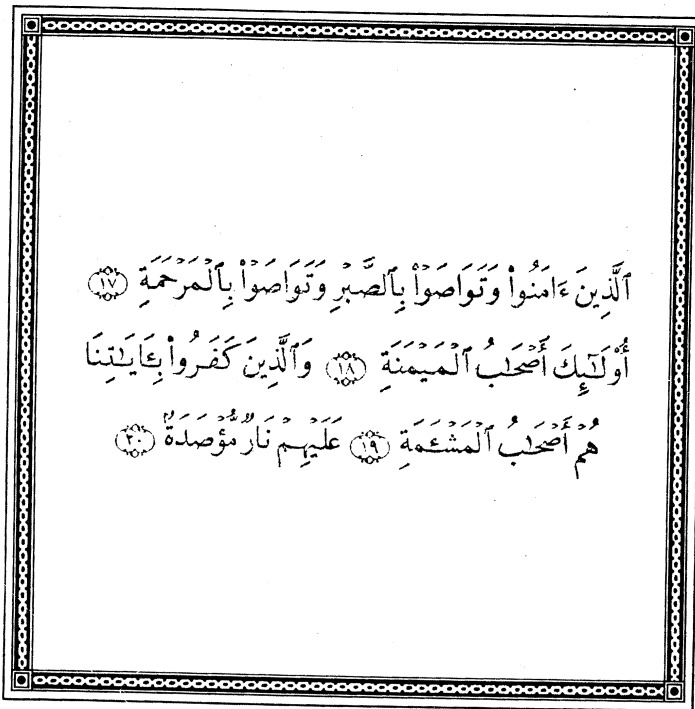 ٱلَّذِينَ ءَامَنُوا۟ وَتَوَاصَوْا۟ بِٱلصَّبْرِ وَتَوَاصَوْا۟ بِٱلْمَرْحَمَةِ ١٧
أُو۟لَـٰٓئِكَ أَصْحَـٰبُ ٱلْمَيْمَنَةِ ١٨ وَٱلَّذِينَ كَفَرُوا۟ بِـَٔايَـٰتِنَا
هُمْ أَصْحَـٰبُ ٱلْمَشْـَٔمَةِ ١٩ عَلَيْهِمْ نَارٌ مُّؤْصَدَةٌۢ ٢٠